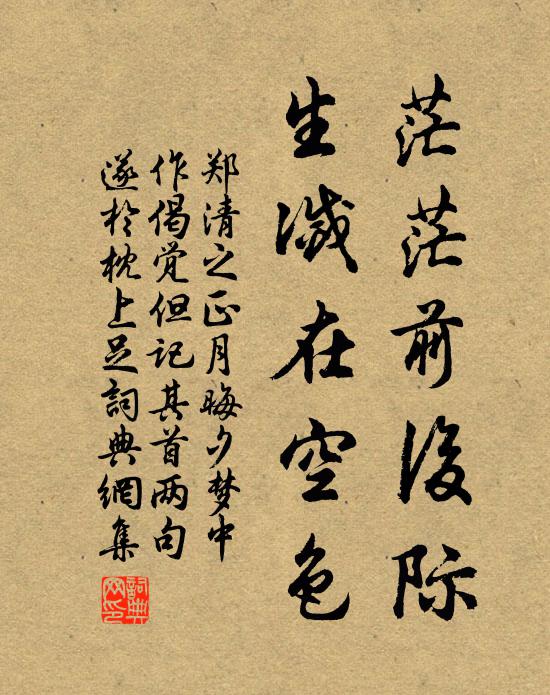 茫茫前後际
生滅在空色
郑清之正月晦夕梦中
作偈觉但记其首两句
遂於枕上足詞典網集
詞典网印